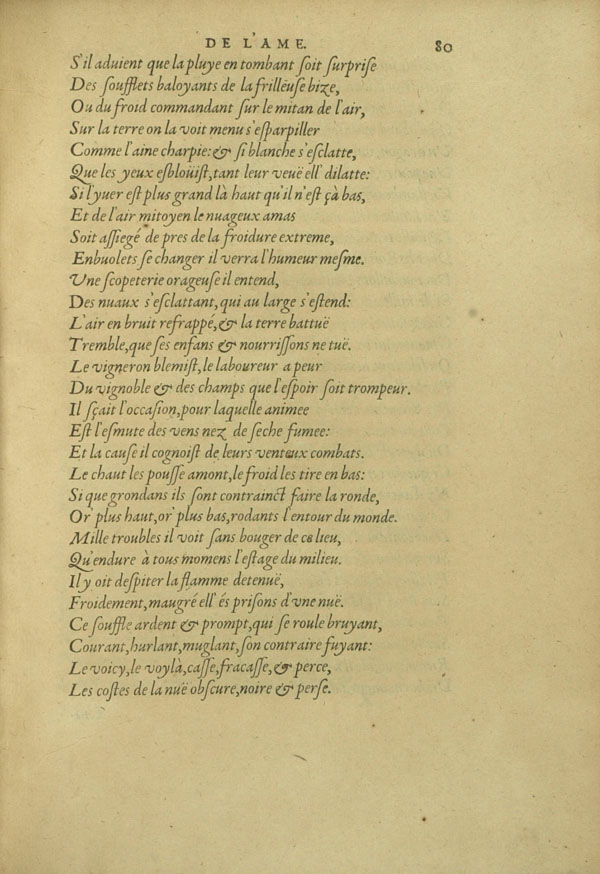 DE L'AME. 80
S'il aduient que la pluye en tombant ſoit ſurpriſe
Des ſoufflets baloyants de la frilleuſe bize,
Ou du froid commandant ſur le mitan de l'air,
Sur la terre on la voit menu s'eſparpiller
Comme l'aine charpie: & ſi blanche s'eſclatte,
Que les yeux esbloüiſt, tant leur veuë ell' dilatte:
Si l'yuer eſt plus grand là haut qu'il n'eſt çà bas,
Et de l'air mitoyen le nuageux amas
Soit aſſiegé de pres de la froidure extreme,
Enbuolets ſe changer il verra l'humeur meſme.
Vne ſcopeterie orageuſe il entend,
Des nuaux s'eſclattant, qui au large s'eſtend:
L'air en bruit refrappé, & la terre battuë
Tremble, que ſes enfans & nourriſſons ne tuë.
Le vigneron blemiſt, le laboureur a peur
Du vignoble & des champs que l'eſpoir ſoit trompeur.
Il ſçait l'occaſion, pour laquelle animee
Eſt l'eſmute des vens nez de ſeche fumee:
Et la cauſe il cognoiſt de leurs venteux combats.
Le chaut les pouſſe amont, le froid les tire en bas:
Si que grondans ils ſont contrainct faire la ronde,
Or' plus haut, or' plus bas, rodants l'entour du monde.
Mille troubles il voit ſans bouger de ce lieu,
Qu'endure à tous momens l'eſtage du milieu.
Il y oit deſpiter la flamme detenuë,
Froidement, maugré ell' és priſons d'vne nuë.
Ce ſouffle ardent & prompt, qui ſe roule bruyant,
Courant, hurlant, muglant, ſon contraire fuyant:
Le voicy, le voylà, caſſe, fracaſſe, & perce,
Les coſtes de la nuë obſcure, noire & perſe.